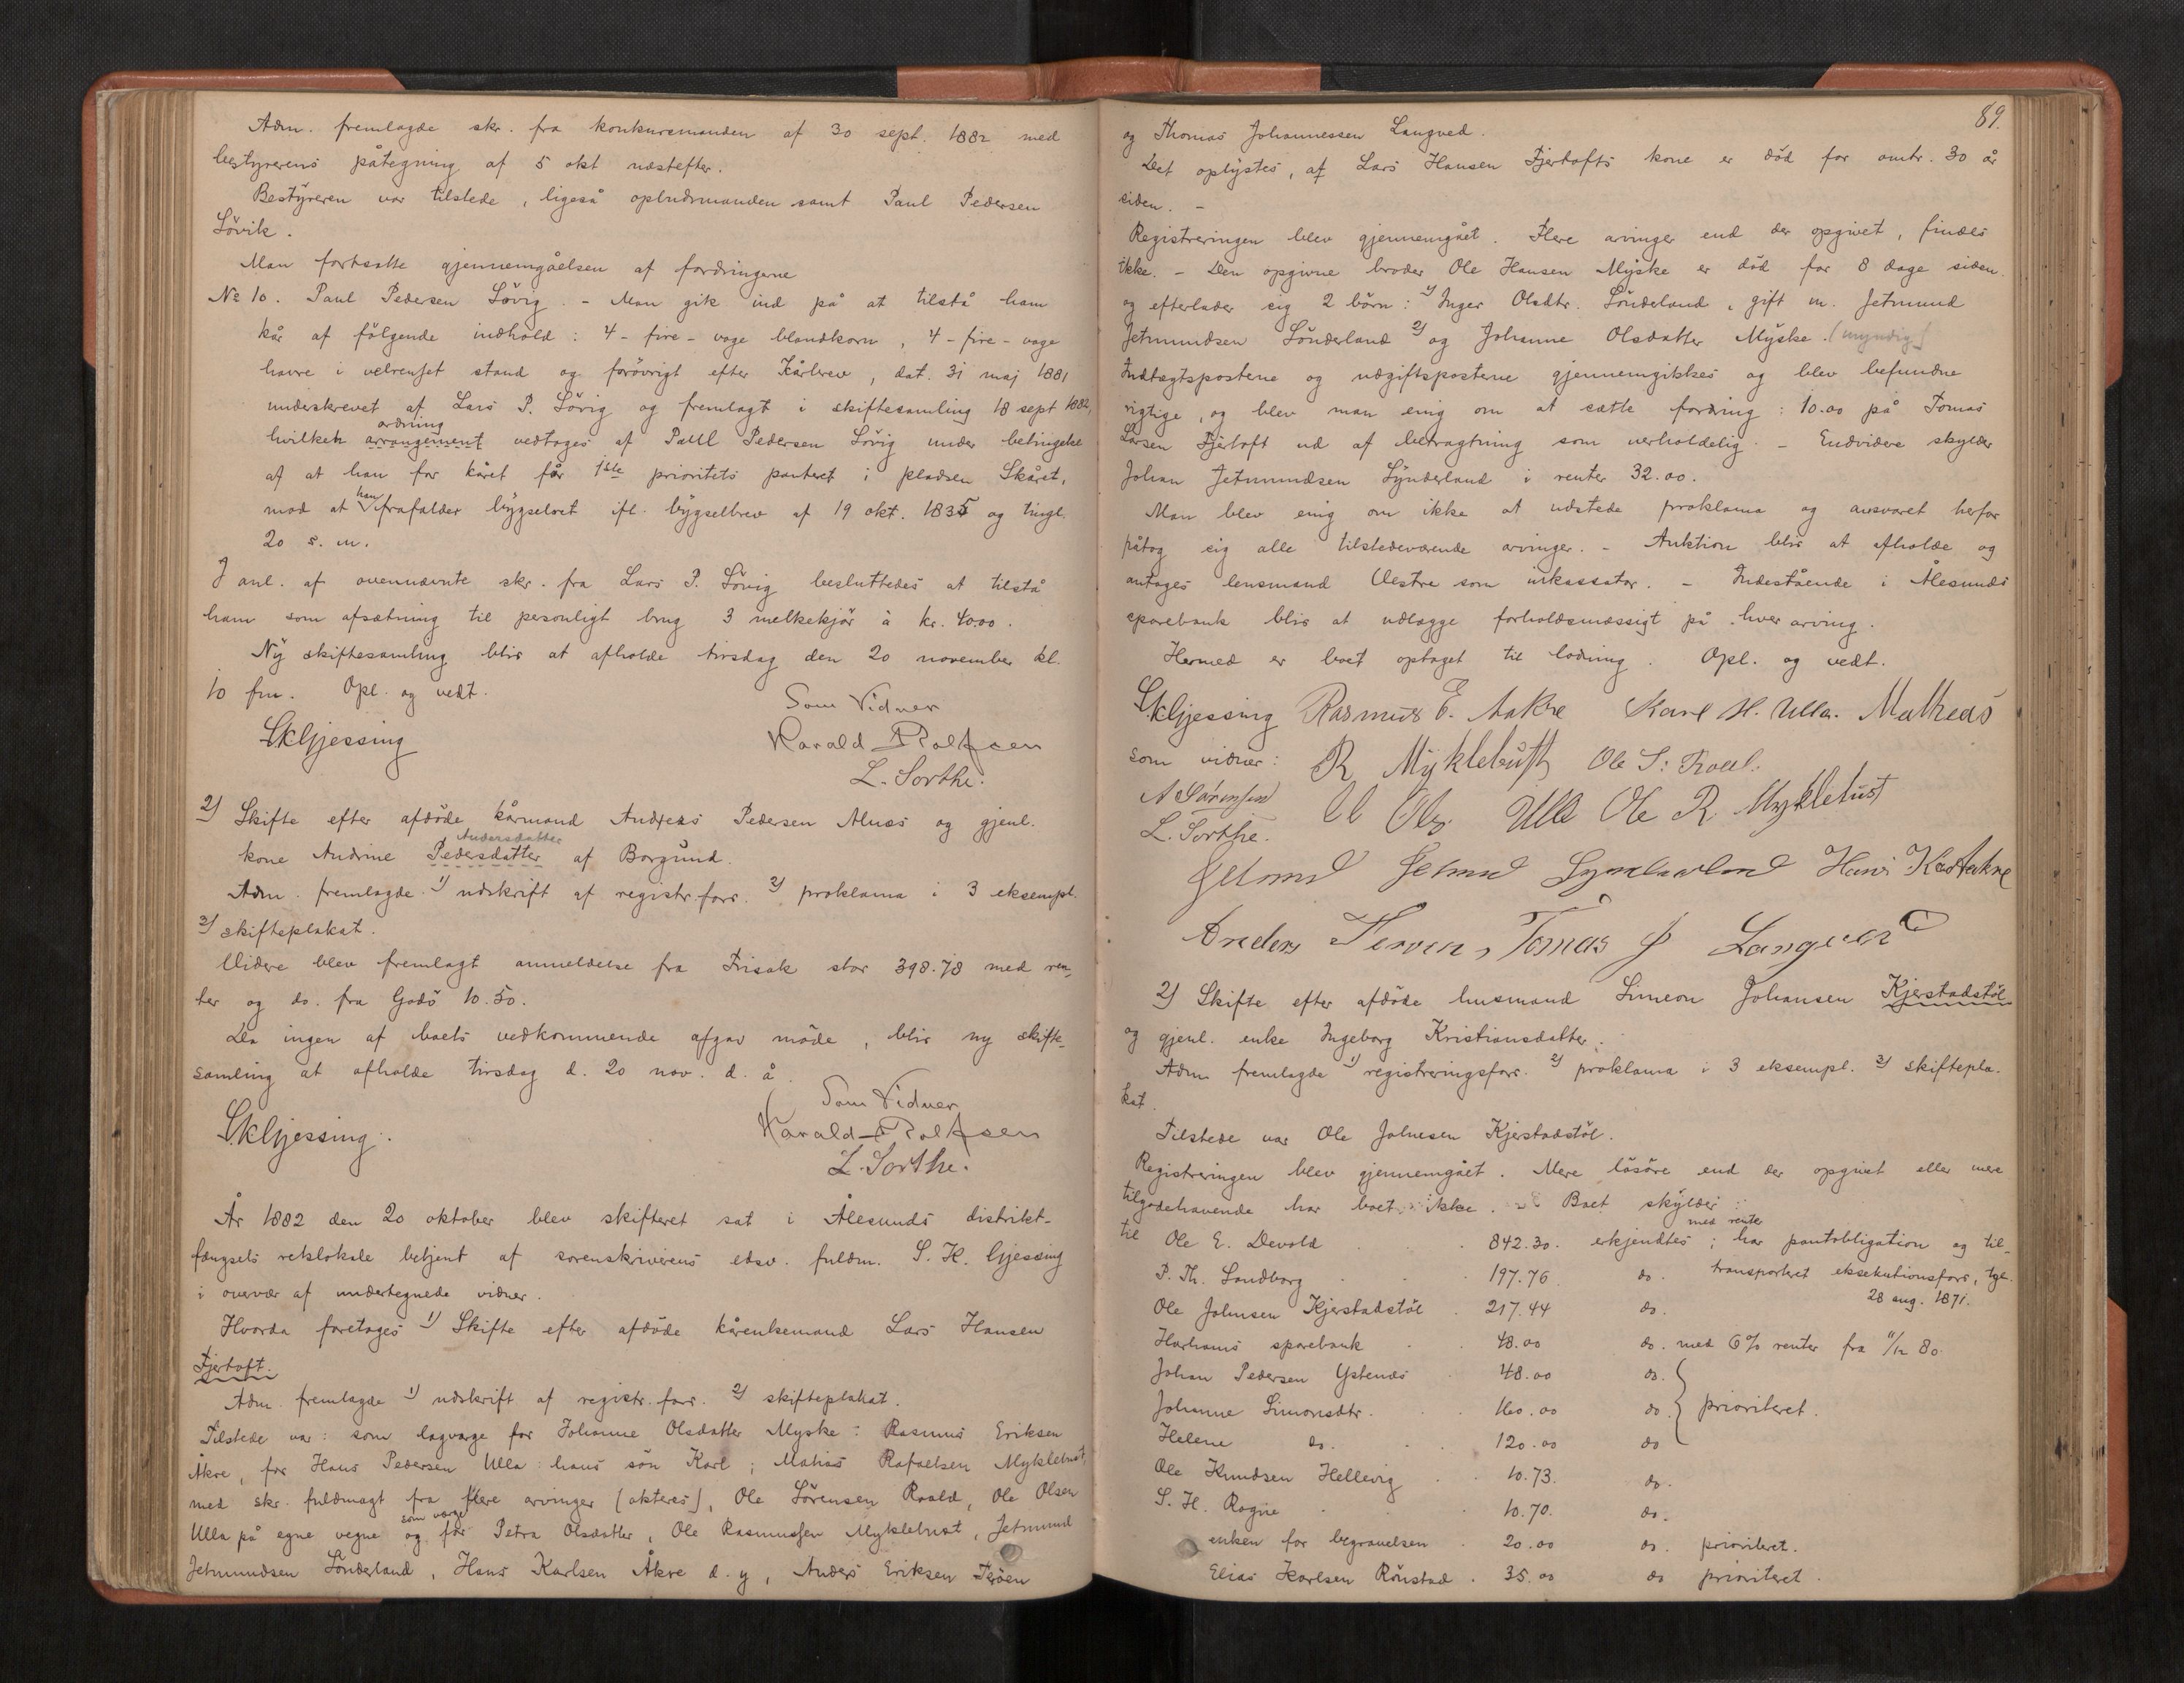 Adm. fremlagde skr. fra konkursmanden af 30 sept. 1882 med
bestyrerens påtegning af 5 okt næstefter.
Bestyreren var tilstede, ligeså opbudsmanden samt Paul Pedersen
Lövik.
Man fortsatte gjennemgåelsen af fordringerne
No 10. Paul Pedersen Lövig. - Man gik ind på at tilstå ham
kår af fölgende indhold: 4 - fire - voge blandkorn, 4 - fire - voge
havre i velrenset stand og forövrigt efter Kårbrev, dat. 31 maj 1881
underskrevet af Lars P. Lövig og fremlagt i skiftesamling 18 sept 1882,
ordning
hvilket arrangement vedtoges af Paul Pedersen Lövig under betingelse
af at han for kåret får 1ste prioritets panteret i pladsen Skåret,
mod at han frafalder bygselret ifl. bygselbrev af 19 okt. 1835 og tingl.
20 s. m.
I anl. af ovennævnte skr. fra Lars P. Lövig besluttedes at tilstå
ham som afsætning til personligt brug 3 melkekjör à kr. 40.00.
Ny skiftesamling blir at afholde tirsdag den 20 november kl.
10 fm. Opl. og vedt.
Som Vidner
SKGjessing
Harald Rolfsen
L. Sorthe.
2) Skifte efter afdöde kårmand Andreas Pedersen Alnæs og gjenl.
Andersdatter
kone Andrine Pedersdatter af Borgund.
Adm. fremlagde 1) udskrift af registr. forr. 2) proklama i 3 eksempl.
3) skifteplakat.
Videre blev fremlagt anmeldelse fra Frisak stor 398.78 med ren-
ter og do. fra Godö 10.50.
Da ingen af boets vedkommende afgav möde, blir ny skifte-
samling at afholde tirsdag d. 20 nov. d. å.
Som Vidner
SKGjessing.
Harald Rolfsen
L. Sorthe.
År 1882 den 20 oktober blev skifteret sat i Ålesunds distrikt-
fængsels retslokale betjent af sorenskriverens edsv. fuldm. S. K. Gjessing
i overvær af undertegnede vidner.
Hvorda foretoges 1) Skifte efter afdöde kårenkemand Lars Hansen
Fjertoft.
Adm. fremlagde 1) udskrift af registr. forr. 2) skifteplakat.
Tilstede var: som lagværge for Johanne Olsdatter Myske: Rasmus Eriksen
Åkre, for Hans Pedersen Ulla hans sön Karl; Matias Rafaelsen Myklebust,
med skr. fuldmagt fra flere arvinger (akteres), Ole Sörensen Roald, Ole Olsen
som værge
Ulla på egne vegne og for Petra Olsdatter, Ole Rasmussen Myklebust, Jetmund
Jetmundsen Sönderland, Hans Karlsen Åkre d. y., Anders Eriksen Teröen
89.
og Thomas Johannessen Langved.
Det oplystes, at Lars Hansen Fjertofts kone er död for omtr. 30 år
siden. -
Registreringen blev gjennemgået. Flere arvinger end der opgivet, findes
ikke. - Den opgivne broder Ole Hansen Myske er död for 8 dage siden
og efterlader sig 2 börn: 1) Inger Olsdtr. Sönderland, gift m. Jetmund
Jetmundsen Sönderland 2) og Johanne Olsdatter Myske. (myndig)
Indtægtsposterne og udgiftsposterne gjennemgikkes og blev befundne
rigtige, og blev man enig om at sætte fordring: 10.00 på Tomas
Larsen Fjertoft ud af betragtning som uerholdelig. - Endvidere skylder
Johan Jetmundsen Synderland i renter 32.00.
Man blev enig om ikke at udstede proklama og ansvaret herfor
påtog sig alle tilstedeværende arvinger. - Auktion blir at afholde og
antages lensmand Vestre som inkassator. - Indestående i Ålesunds
sparebank blir at udlægge forholdsmæssigt på hver arving.
Hermed er boet optaget til lodning. Opl. og vedt.
SKGjessing Rasmus E. Aakre Karl H. Ulla. Matheas
som vidner: R Myklebust Ole S: Roall.
A Sörensen
Ol Ols Ulla Ole R. Myklebust
L. Sorthe.
Jetmund Jetmund Synderland Hans K Aakre
Anders Terøen, Tomas J Langved
2) Skifte efter afdöde husmand Simeon Johansen Kjerstadstöl
og gjenl. enke Ingeborg Kristiansdatter.
Adm fremlagde 1) registreringsforr. 2) proklama i 3 eksempl. 3) skiftepla-
kat.
Tilstede var Ole Johnsen Kjerstadstöl.
Registreringen blev gjennemgået. Mere lösöre end der opgivet eller mere
tilgodehavende har boet ikke. Boet skylder
til Ole E. Devold 842.30. erkjendtes med renter; har pantobligation og til-
P. Th. Sandborg 197.76 do. transporteret eksekutionsforr., tgl.
28 aug. 1871.
Ole Johnsen Kjerstadstöl 217.44 do.
Harhams sparebank 48.00 do. med 6% renter fra 1/12 80.
Johan Pedersen Ystenæs 48.00 do.
Johanne Simonsdtr. 160.00 do. prioriteret.
Helene do. 120.00 do
Ole Knudsen Hellevig 10.73. do.
S. H. Rogne 10.70. do.
enken for begravelsen 20.00 do. prioriteret.
Elias Karlsen Rönstad. 35.00 do prioriteret.